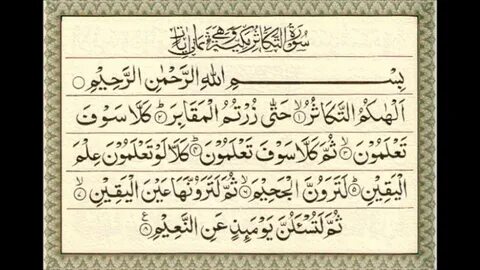 سُورَةُ التَّكَاثُرِ مَكِّيَّةٌ وَهِيَ ثَمَانِ اٰيَاتٍ
بِسْمِ اللّٰهِ الرَّحْمٰنِ الرَّحِيْمِ
اَلْهٰىكُمُ التَّكَاثُرُ ۙ۱ حَتّٰى زُرْتُمُ الْمَقَابِرَ ۲ كَلَّا سَوْفَ
تَعْلَمُوْنَ ۙ۳ ثُمَّ كَلَّا سَوْفَ تَعْلَمُوْنَ ۴ كَلَّا لَوْ تَعْلَمُوْنَ عِلْمَ
الْيَقِيْنِ ۵ لَتَرَوُنَّ الْجَحِيْمَ ۙ۶ ثُمَّ لَتَرَوُنَّهَا عَيْنَ الْيَقِيْنِ ۙ۷
ثُمَّ لَتُسْئَلُنَّ يَوْمَىِٕذٍ عَنِ النَّعِيْمِ ۸ ع